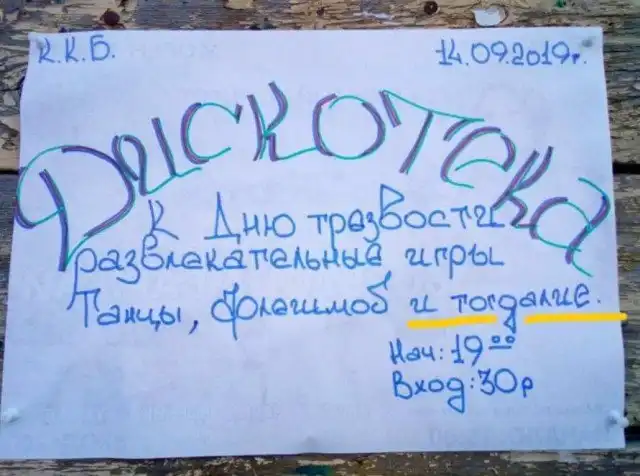 К.К.Б. 14.09.2019г.
Дискотека
К Дню трезвости
развлекательные игры
Танцы, флешмоб и тогдалие.
Нач: 19⁰⁰
Вход: 30р